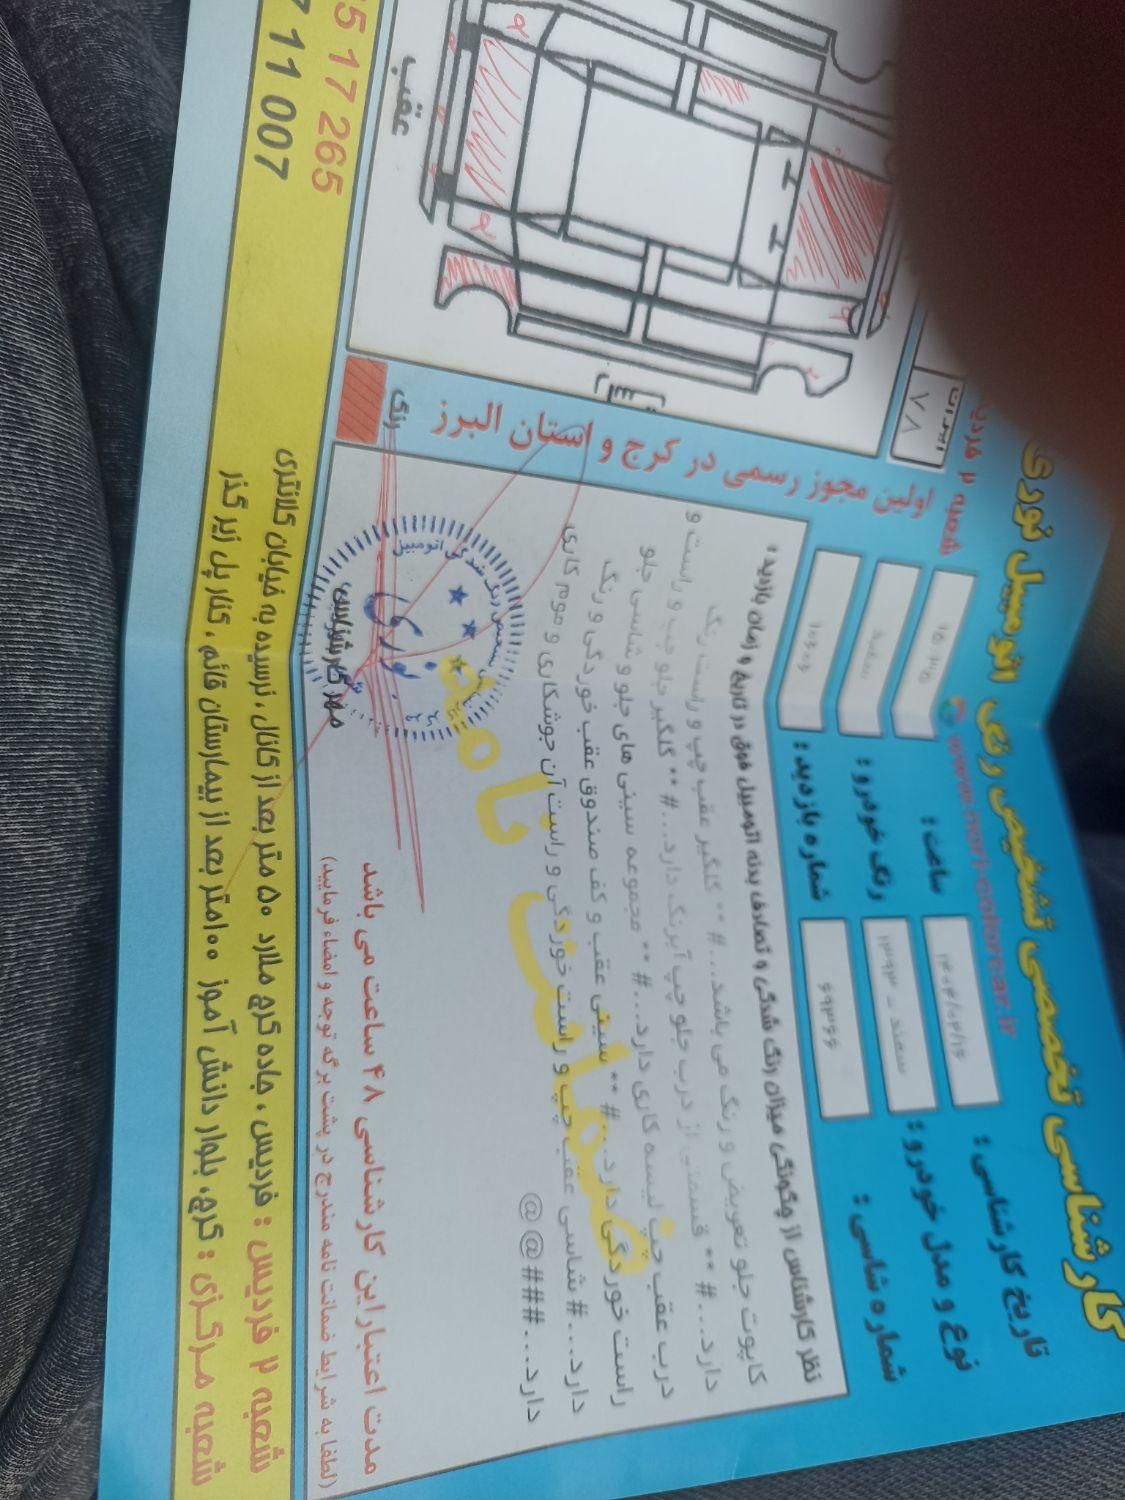 کارشناسی تخصصی تشخیص رنگ اتومبیل نوری
www.nori-colorcar.ir
شعبه ۲ فردیس
تاریخ کارشناسی :
ساعت :
نوع و مدل خودرو :
سمند - ۱۳۹۳
رنگ خودرو :
سفید
شماره شاسی :
۶۹۳۶۶
شماره بازدید :
۷۸
اولین مجوز رسمی در کرج و استان البرز
نظر کارشناس از چگونگی میزان رنگ شدگی و تصادف بدنه اتومبیل فوق در تاریخ و زمان بازدید :
کاپوت جلو تعویض و رنگ می باشد...# ** گلگیر عقب چپ و راست رنگ
دارد...# ** قسمتی از درب جلو چپ آبرنگ دارد...# ** گلگیر جلو چپ و راست و
درب عقب چپ لیسه کاری دارد...# ** مجموعه سینی های جلو و شاسی جلو
راست خوردگی دارد...# ** سینی عقب و کف صندوق عقب خوردگی و رنگ
دارد...# شاسی عقب چپ و راست خوردگی و راست آن جوشکاری و موم کاری
دارد...###@@
ضمانت نامه
عقب
رنگ
مهر کارشناسی
مدت اعتبار این کارشناسی ۴۸ ساعت می باشد
(لطفا به شرایط ضمانت نامه مندرج در پشت برگه توجه و امضاء فرمایید)
شعبه ۲ فردیس : فردیس ، جاده کرج ملارد ۵۰ متر بعد از کانال ، نرسیده به خیابان کلانتری
شعبه مرکزی : کرج، بلوار دانش آموز ۱۰۰متر بعد از بیمارستان قائم ، کنار پل زیر گذر
5 17 265
7 11 007